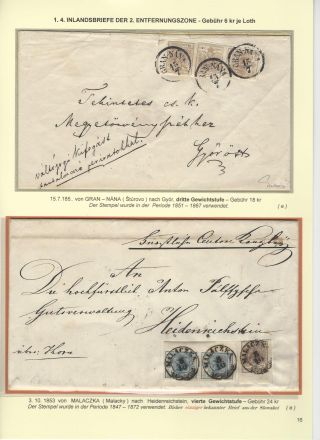 1. 4. INLANDSBRIEFE DER 2. ENTFERNUNGSZONE - Gebühr 6 kr je Loth
GRAN-NANA
GRAN-NANA
GRAN-NANA
15/7
Győrött
15.7.185. von GRAN – NÁNA ( Štúrovo ) nach Győr, dritte Gewichtstufe – Gebühr 18 kr
Der Stempel wurde in der Periode 1851 – 1867 verwendet.
( e )
An
Die hochfürstlich Anton Palffysche
Gutsverwaltung
Heidenreichstein
über Horn
MALACZKA
MALACZKA
MALACZKA
3. 10. 1853 von MALACZKA (Malacky) nach Heidenreichstein, vierte Gewichtstufe – Gebühr 24 kr
Der Stempel wurde in der Periode 1847 – 1872 verwendet. Bisher einziger bekannter Brief aus der Slowakei
( e )
16